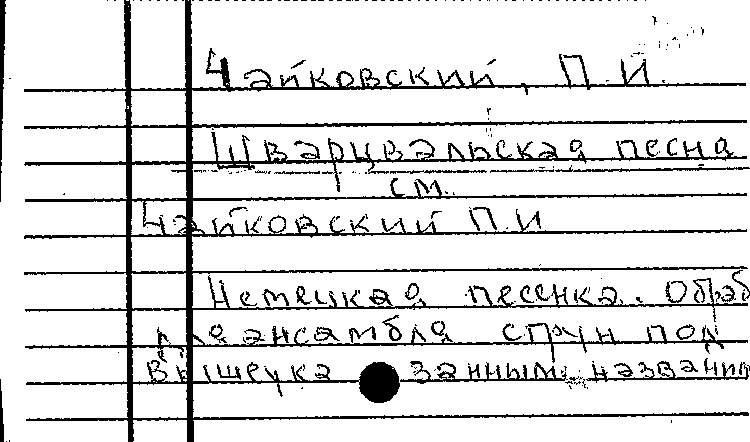 Чайковский, П.И.
Шварцвальская песна
см.
Чайковский П.И
Немецкая песенка. Обраб
для ансамбла струн под
вышеука занным названи